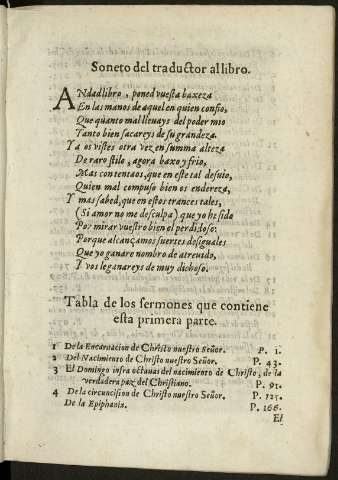 Soneto del traductor al libro.
ANdad libro, poned vuesta baxeza
En las manos de aquel en quien confio,
Que quanto mal lleuays del poder mio
Tanto bien sacareys de su grandeza.
Ya os vistes otra vez en summa alteza
De raro stilo, agora baxo y frio,
Mas contentaos, que en este tal desuio,
Quien mal compuso bien os endereza,
Y mas sabed, que en estos trances tales,
(Si amor no me desculpa) que yo he sido
Por mirar vuestro bien el perdidoso:
Porque alcançamos suertes desiguales
Que yo ganare nombre de atreuido,
Y vos le ganareys de muy dichoso.
Tabla de los sermones que contiene
esta primera parte.
1 De la Encarnacion de Christo nuestro Señor. P. 1.
2 Del Nacimiento de Christo nuestro Señor. P. 43.
3 El Domingo infra octauas del nacimiento de Christo, de la
verdadera paz del Christiano. P. 91.
4 De la circuncision de Christo nuestro Señor. P. 125.
De la Epiphania. P. 166.
El